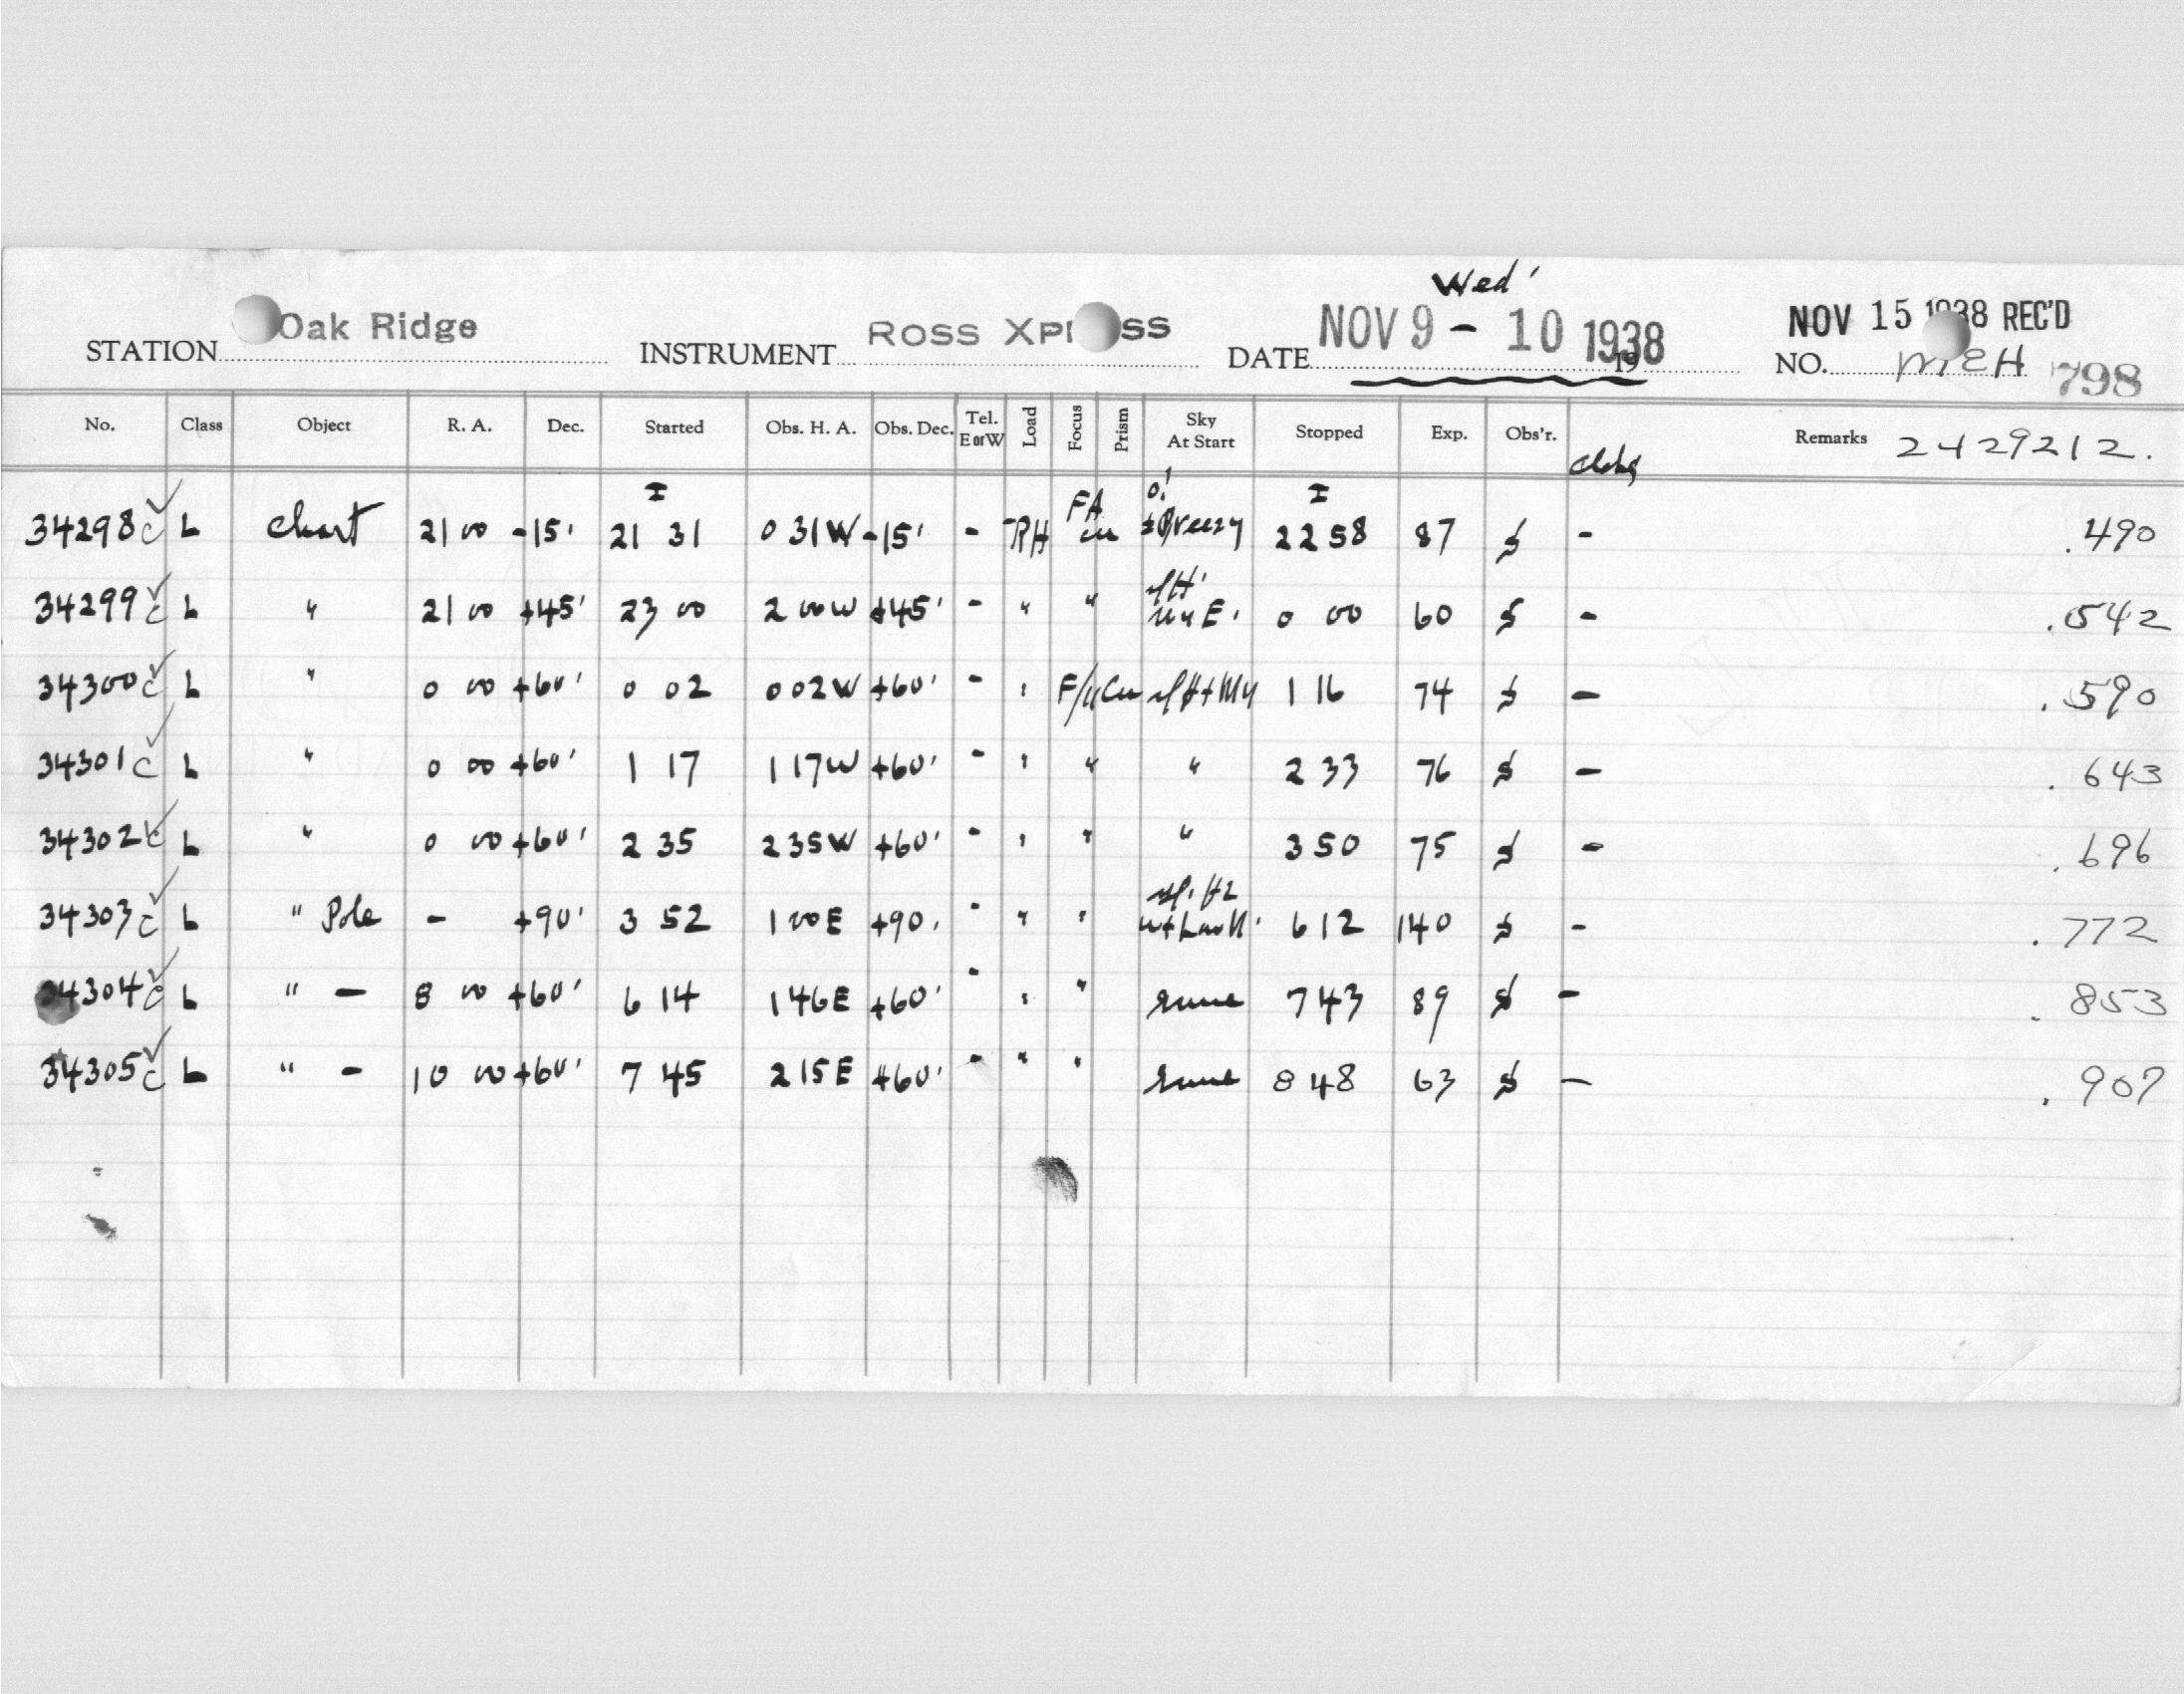 Wed'
STATION Oak Ridge INSTRUMENT ROSS XPRESS DATE NOV 9 - 10 1938 19 NOV 15 1938 REC'D
NO. MEH 798
No. Class Object R. A. Dec. Started Obs. H. A. Obs. Dec. Tel. E or W Load Focus Prism Sky At Start Stopped Exp. Obs'r. Remarks 2429212.
34298 c L Chart 21 00 -15' 21 31 0 31W -15' - PH FA Breezy 22 58 87 S - .490
34299 c L " 21 00 +45' 23 00 2 00W +45' - " " 0 00 60 S - .542
34300 c L " 0 00 +60' 0 02 0 02W +60' - " 1 16 74 S - .590
34301 c L " 0 00 +60' 1 17 1 17W +60' - " " " 2 33 76 S - .643
34302 c L " 0 00 +60' 2 35 2 35W +60' - " " " 3 50 75 S - .696
34303 c L " Pole - +90' 3 52 1 00E +90' - " " 6 12 140 S - .772
34304 c L " - 8 00 +60' 6 14 1 46E +60' - " " same 7 43 89 S - .853
34305 c L " - 10 00 +60' 7 45 2 15E +60' - " " same 8 48 63 S - .907